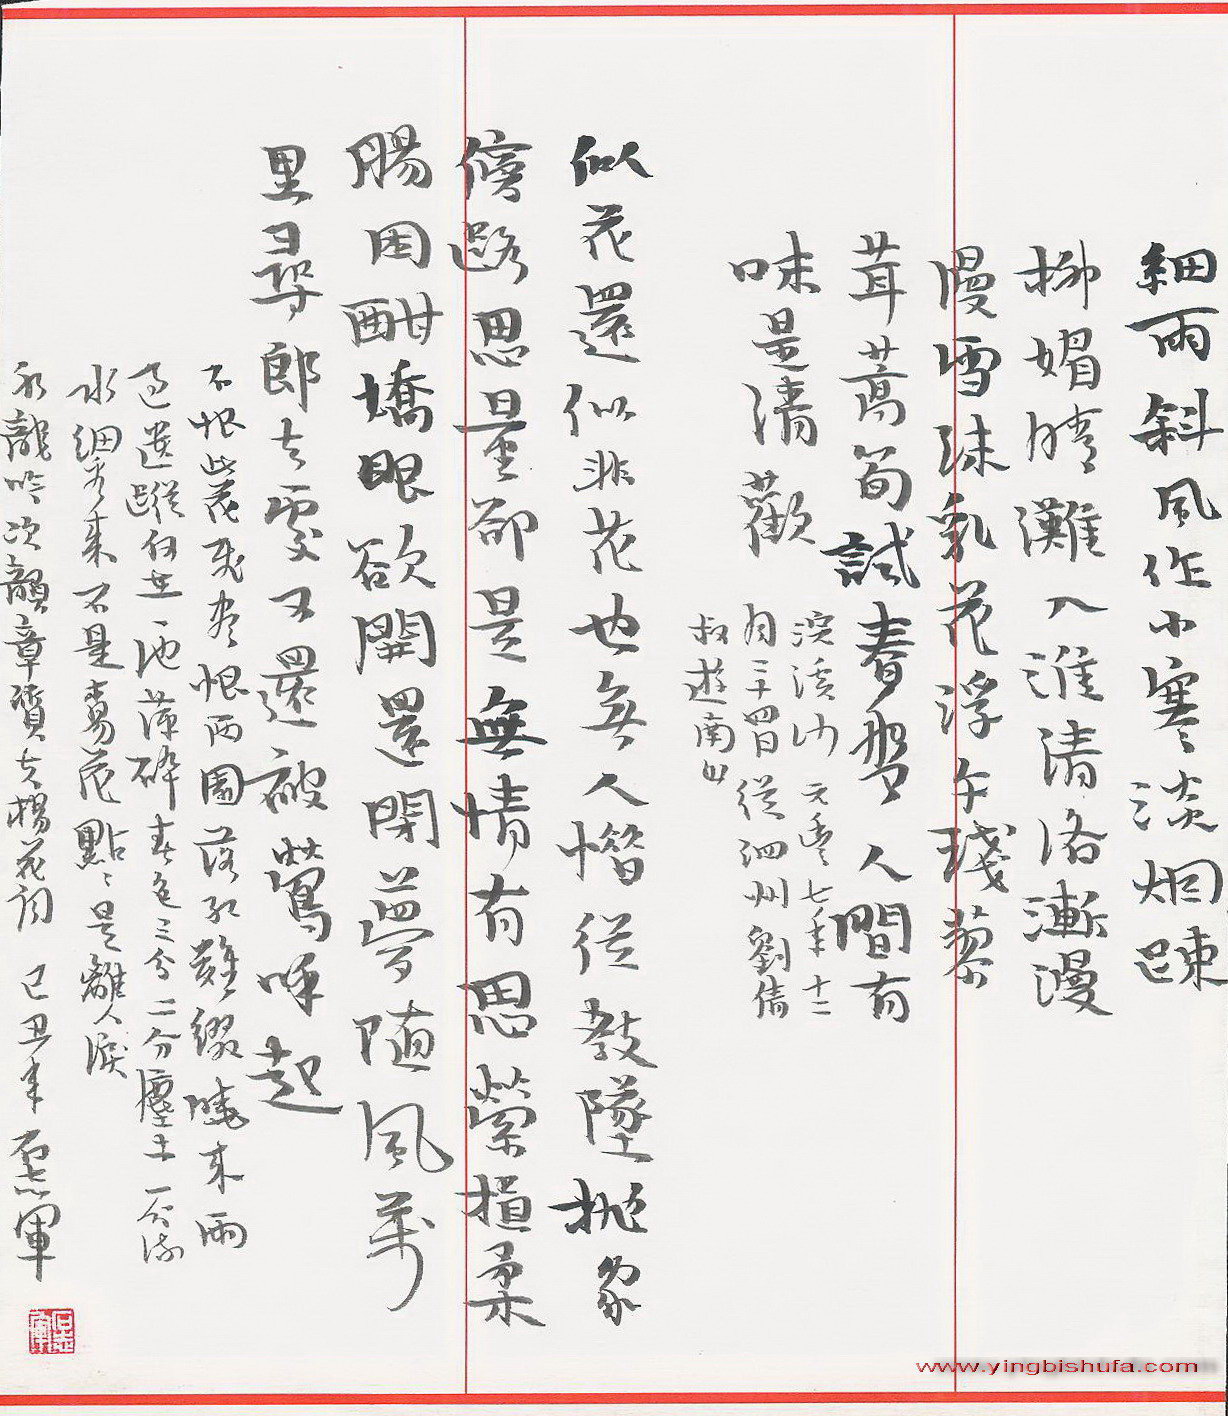 細雨斜風作小寒淡烟疎
柳媚晴灘入淮清洛漸漫
慢雪沫乳花浮午琖蓼
茸蒿筍試春盤人間有
味是清歡
浣溪沙 元豐七年十二
月二十四日從泗州劉倩
叔遊南山
似花還似非花也無人惜從教墜拋家
傍路思量卻是無情有思縈損柔
腸困酣嬌眼欲開還閉夢隨風萬
里尋郎去處又還被鶯呼起
不恨此花飛盡恨西園落紅難綴曉來雨
過遺蹤何在一池萍碎春色三分二分塵土一分流
水細看來不是楊花點點是離人淚
水龍吟次韻章質夫楊花詞 己丑年 石志軍
石志軍
www.yingbishufa.com